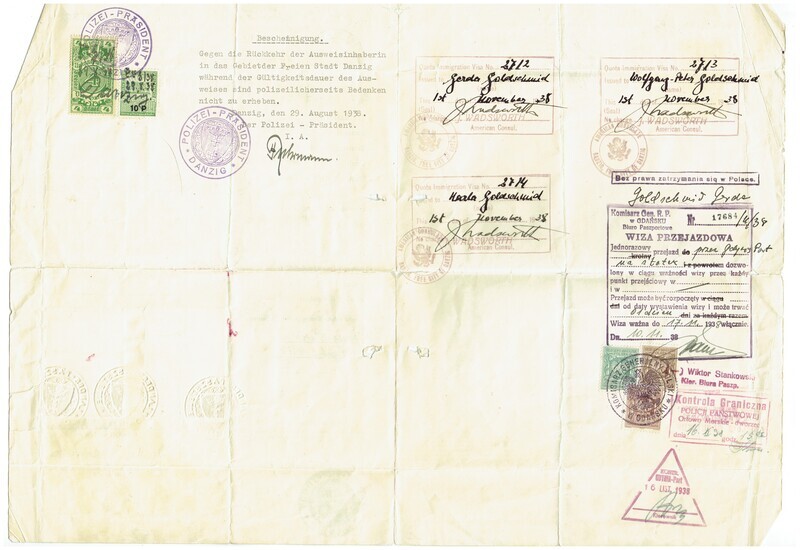 POLIZEI-PRÄSIDENT
10 P
Bescheinigung.
Gegen die Rückkehr der Ausweisinhaberin
in das Gebiet der Freien Stadt Danzig
während der Gültigkeitsdauer des Aus-
weises sind polizeilicherseits Bedenken
nicht zu erheben.
Danzig, den 29. August 1938.
Der Polizei - Präsident.
I. A.
POLIZEI-PRÄSIDENT
DANZIG
Quota Immigration Visa No. 2712
Gerda Goldschmid
1st November 38
J. Wadsworth
J. WADSWORTH
American Consul.
Quota Immigration Visa No. 2713
issued to Wolfgang-Peter Goldschmid
1st November 38
J. Wadsworth
J. WADSWORTH
American Consul.
Quota Immigration Visa No. 2714
Herta Goldschmid
1st November 38
J. Wadsworth
J. WADSWORTH
American Consul.
Bez prawa zatrzymania się w Polsce.
Goldschmid Gerda
Komisarz Gen. R. P.
w GDAŃSKU
Biuro Paszportowe
№ 17684/4/38
WIZA PRZEJAZDOWA
Jednorazowy przejazd do przez Gdynia Port
na statek z powrotem dozwo-
lony w ciągu ważności wizy przez każdy
punkt przejściowy w
i w
Przejazd może być rozpoczęty w ciągu
dni od daty wystawienia wizy i może trwać
dni za każdym razem.
Wiza ważna do 17.11. 1938 włącznie.
Dn. 10.11. 38
(-) Wiktor Stankowski
Kier. Biura Paszp.
KOMISARZ GENERALNY
W GDAŃSKU
Kontrola Graniczna
POLICJI PAŃSTWOWEJ
Orłowo Morskie - dworzec
dnia
godz.
16 LIS. 1938